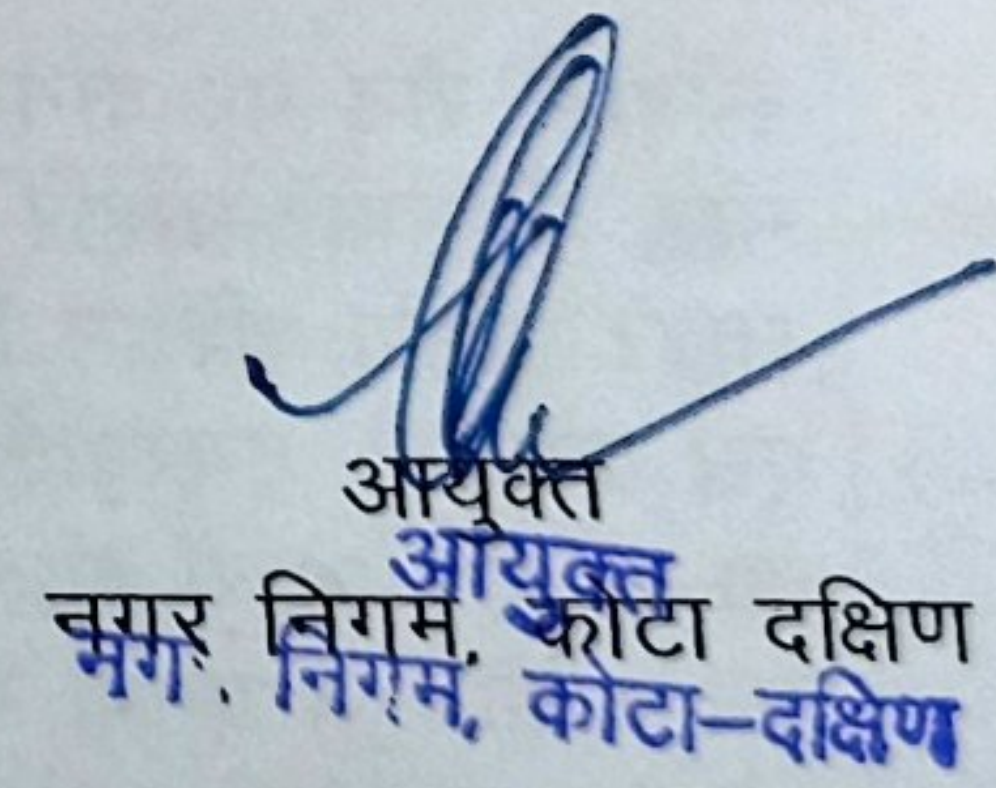 आयुक्त
आयुक्त
नगर निगम, कोटा दक्षिण
निगम, कोटा–दक्षिण